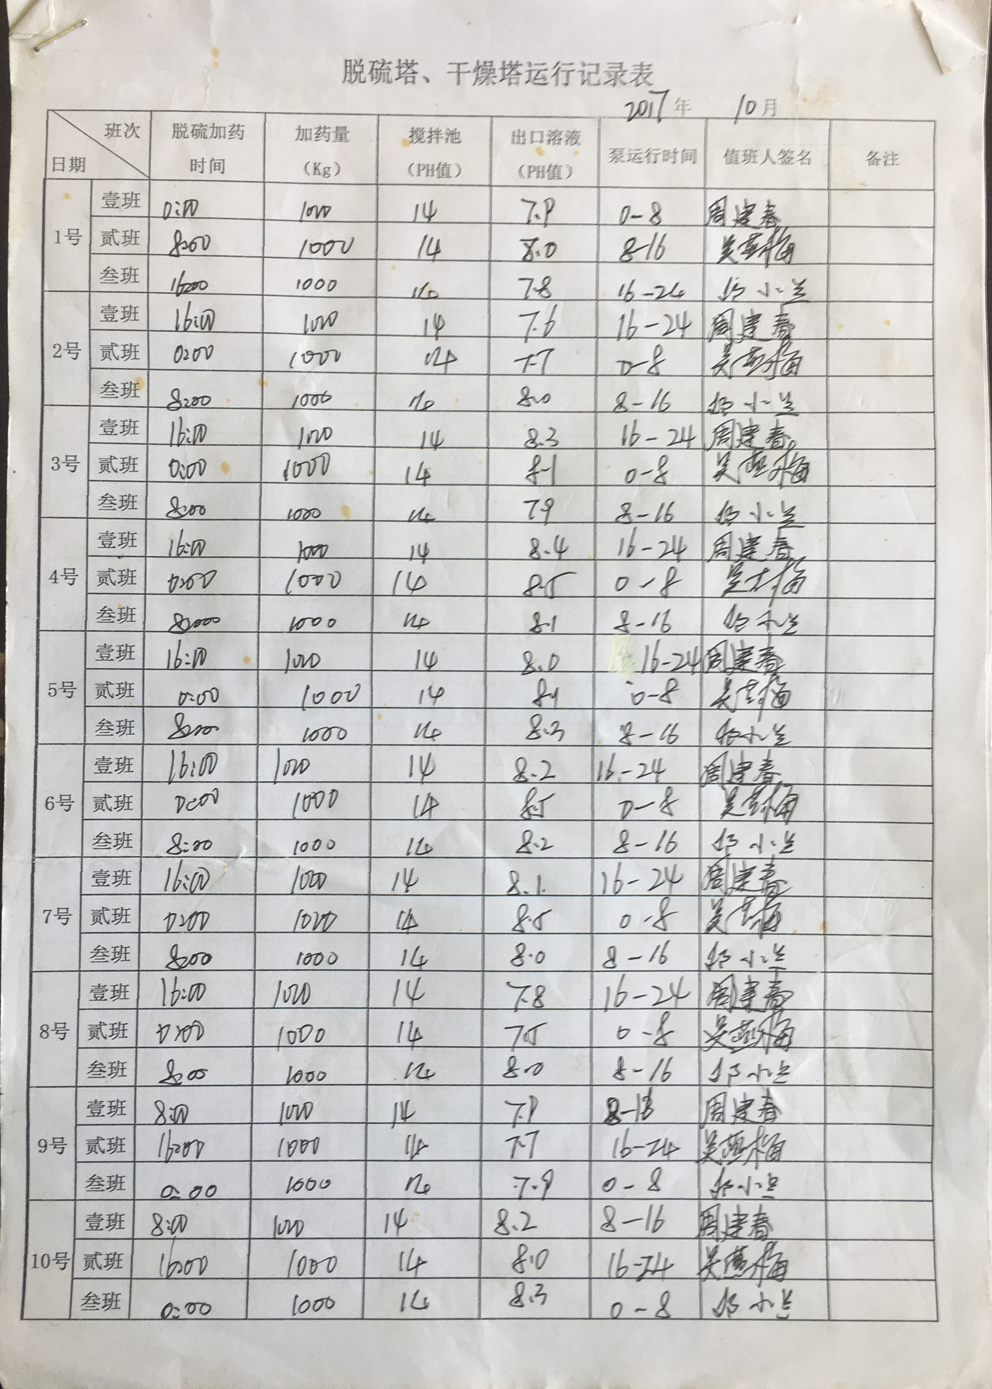 脱硫塔、干燥塔运行记录表
2017年 10月
班次 日期 脱硫加药时间 加药量(Kg) 搅拌池(PH值) 出口溶液(PH值) 泵运行时间 值班人签名 备注
1号 壹班 0:00 1000 14 7.9 0-8 周建春
贰班 8:00 1000 14 8.0 8-16
叁班 16:00 1000 14 7.8 16-24 小兰
2号 壹班 16:00 1000 14 7.6 16-24 周建春
贰班 0:00 1000 14 7.7 0-8
叁班 8:00 1000 14 8.0 8-16 小兰
3号 壹班 16:00 1000 14 8.3 16-24 周建春
贰班 0:00 1000 14 8.1 0-8
叁班 8:00 1000 14 7.9 8-16 小兰
4号 壹班 16:00 1000 14 8.4 16-24 周建春
贰班 0:00 1000 14 8.5 0-8
叁班 1000 14 8.1 8-16 小兰
5号 壹班 16:00 1000 14 8.0 16-24 周建春
贰班 0:00 1000 14 8.1 0-8
叁班 8:00 1000 14 8.3 8-16 小兰
6号 壹班 16:00 1000 14 8.2 16-24 周建春
贰班 0:00 1000 14 8.5 0-8
叁班 8:00 1000 14 8.2 8-16 小兰
7号 壹班 16:00 1000 14 8.1 16-24 周建春
贰班 0:00 1000 14 8.5 0-8
叁班 8:00 1000 14 8.0 8-16 小兰
8号 壹班 16:00 1000 14 7.8 16-24 周建春
贰班 0:00 1000 14 7.5 0-8
叁班 8:00 1000 14 8.0 8-16 小兰
9号 壹班 8:00 1000 14 7.9 8-16 周建春
贰班 16:00 1000 14 7.7 16-24
叁班 0:00 1000 14 7.9 0-8 小兰
10号 壹班 8:00 1000 14 8.2 8-16 周建春
贰班 16:00 1000 14 8.0 16-24
叁班 0:00 1000 14 8.3 0-8 小兰